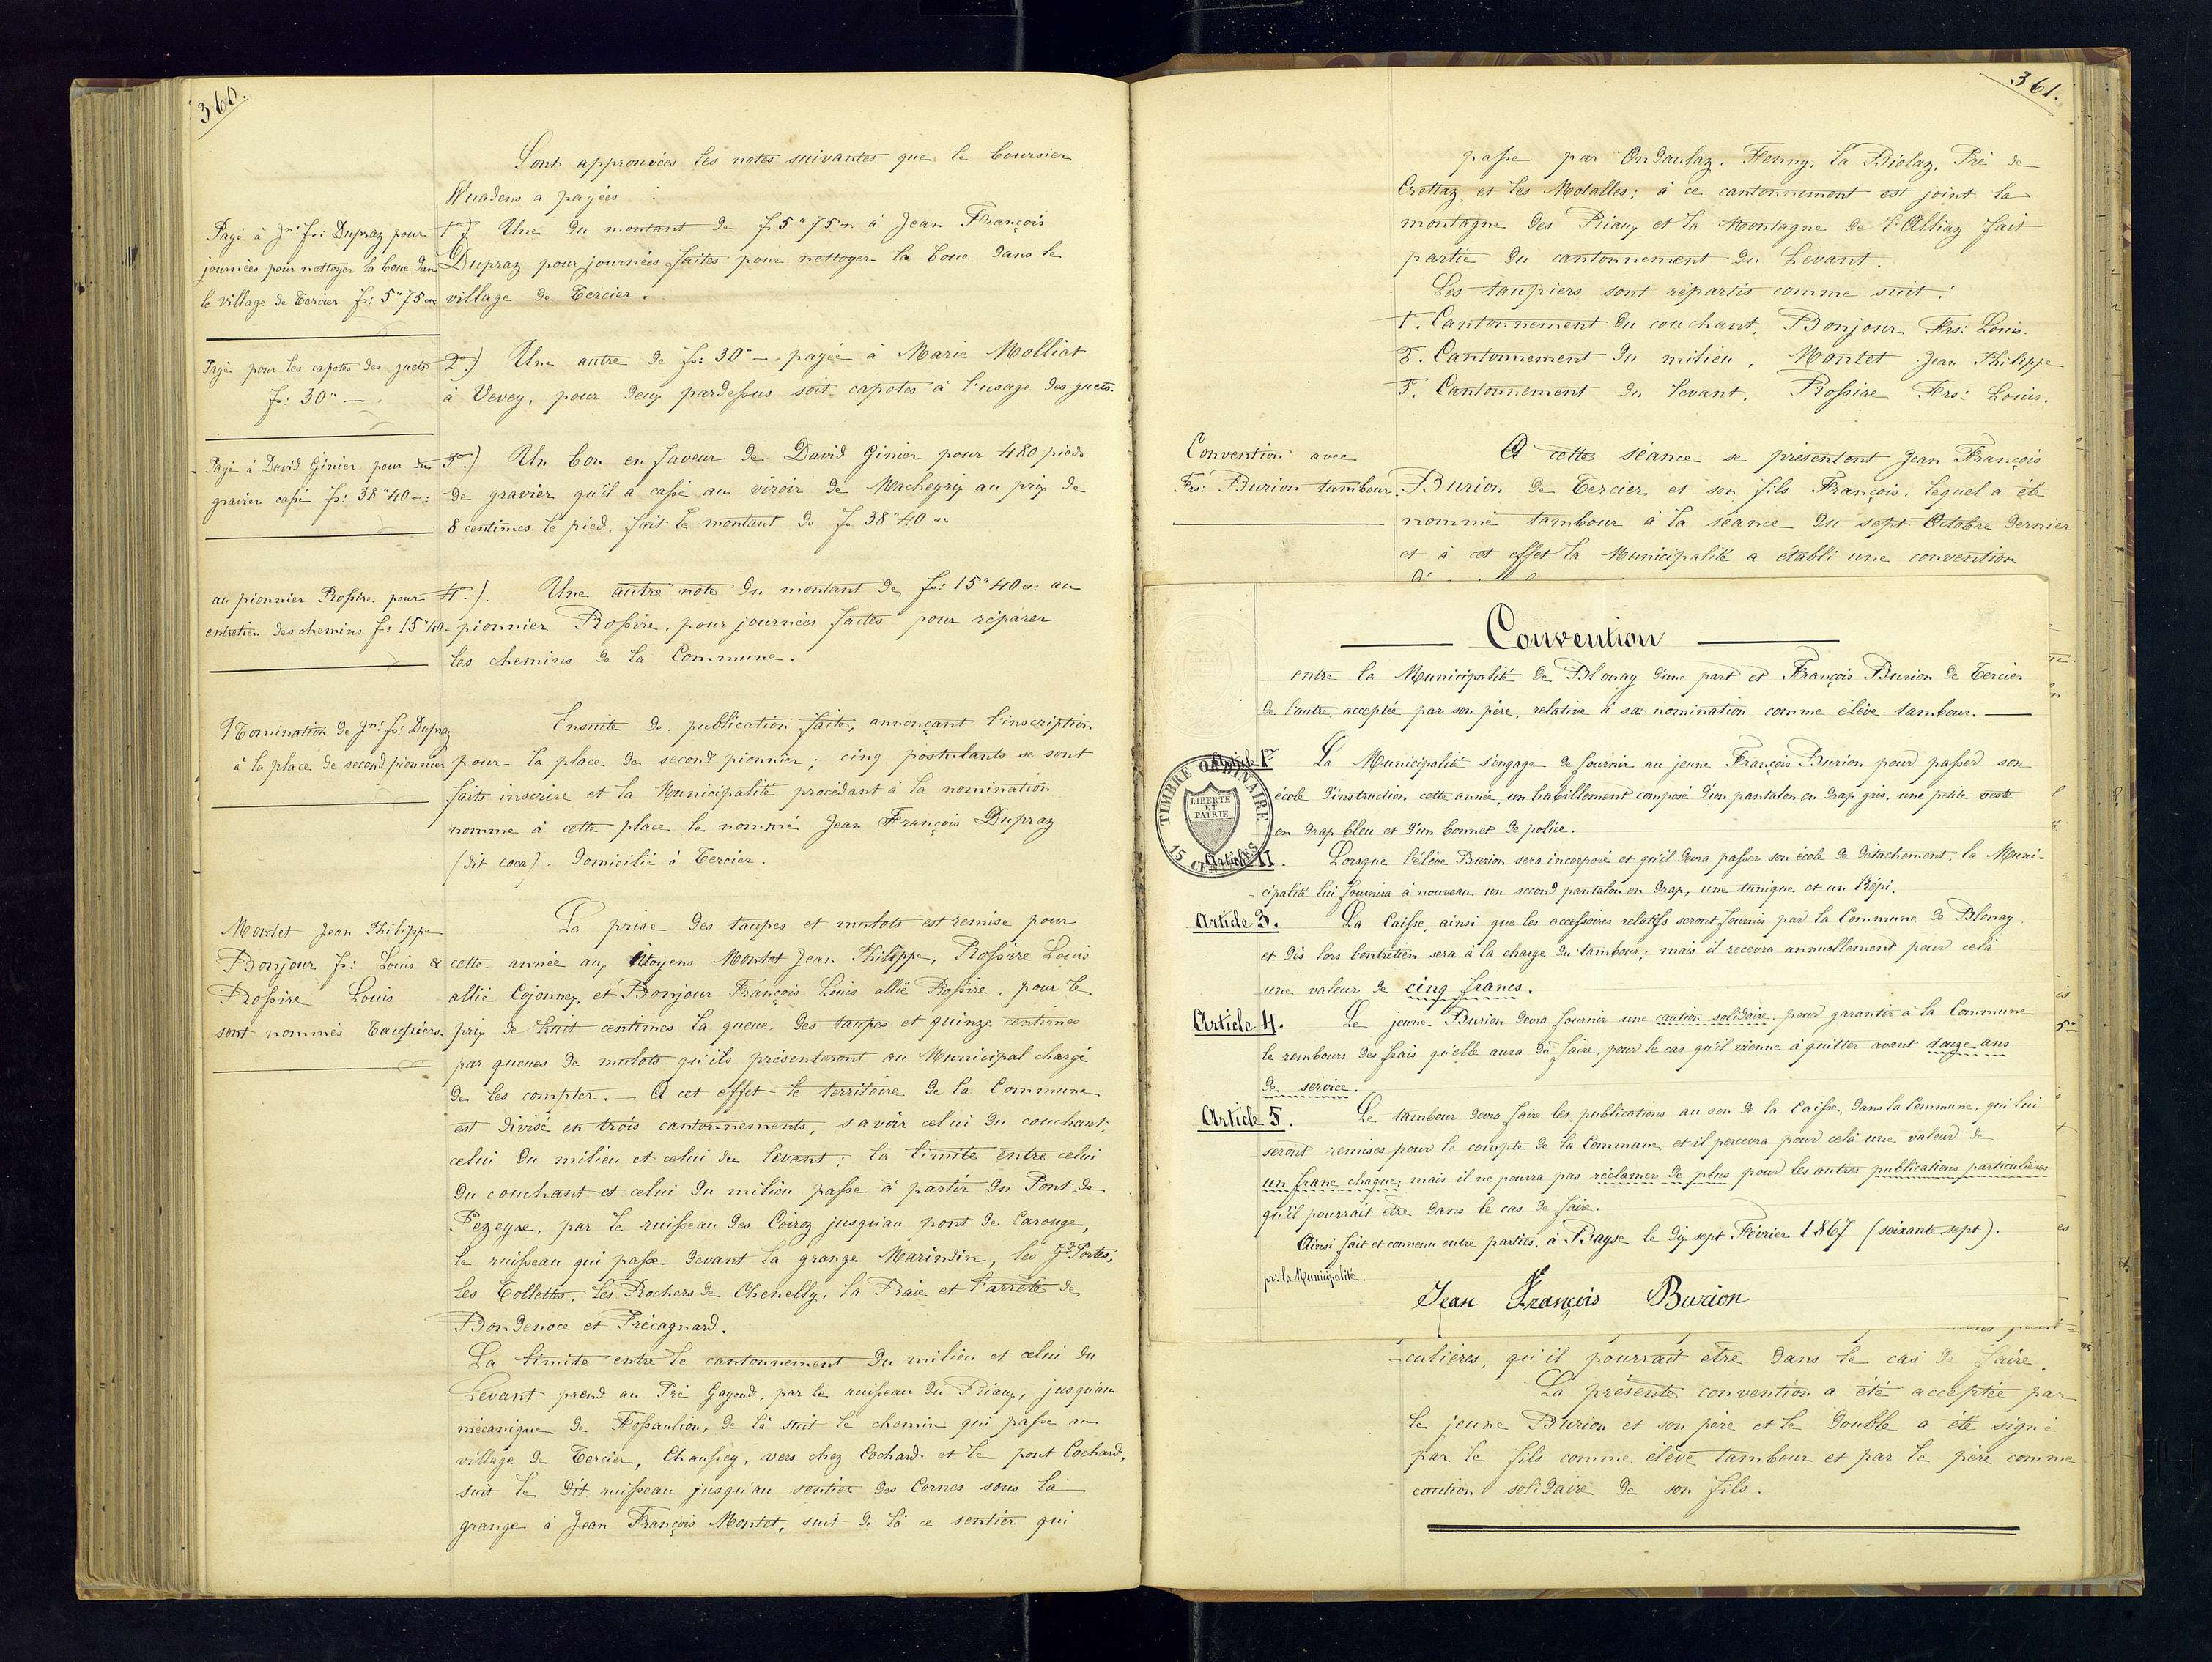 360.
Sont approuvées les notes suivantes que le boursier
Wuadens a payées :
Payé à Jn: fs: Dupraz pour
journées pour nettoyer la boue dans
le village de Tercier fr: 5"75 cs
1°) Une du montant de f 5"75 cs à Jean François
Dupraz pour journées faites pour nettoyer la boue dans le
village de Tercier.
Payé pour les capotes des guets
fr: 30" —.
2°.) Une autre de fr: 30" — payée à Marie Molliat
à Vevey, pour deux pardessus soit capotes à l'usage des guets.
Payé à David Ginier pour du
gravier cassé fr: 38"40 —:
3°.) Un bon en faveur de David Ginier pour 480 pieds
de gravier qu'il a cassé au viroir de Macheyrix au prix de
8 centimes le pied, fait le montant de fr 38"40 cs
au pionnier Rossire pour
entretien des chemins f: 15"40 -
4°.). Une autre note du montant de fr: 15"40 cs: au
pionnier Rossire, pour journées faites pour réparer
les chemins de la Commune.
Nomination de Jn: fs: Dupraz
à la place de second pionnier
Ensuite de publication faite, annonçant l'inscription
pour la place de second pionnier; cinq postulants se sont
faits inscrire et la Municipalité procédant à la nomination
nomme à cette place le nommé Jean François Dupraz
(dit coca). domicilié à Tercier.
Montet Jean Philippe
Bonjour fs: Louis &
Rossire Louis
sont nommés Taupiers.
La prise des taupes et mulots est remise pour
cette année aux citoyens Montet Jean Philippe, Rossire Louis
allié Cojonnex, et Bonjour François Louis allié Rossire, pour le
prix de huit centimes la queue des taupes et quinze centimes
par queues de mulots qu'ils présenteront au Municipal chargé
de les compter. — A cet effet le territoire de la Commune
est divisé en trois cantonnements, savoir celui du couchant,
celui du milieu et celui du levant; la limite entre celui
du couchant et celui du milieu passe à partir du Pont de
Pezeyre, par le ruisseau des Coirez jusqu'au pont de Carouge,
le ruisseau qui passe devant la grange Marindin, les Gd Portes,
les Tollettes, les Rochers de Chenelly, la Fraie et l'arrête de
Bondenoce et Frécagnard.
La limite entre le cantonnement du milieu et celui du
Levant prend au Pré Gagoud, par le ruisseau du Riaux, jusqu'au
mécanique de Fossaulion, de là suit le chemin qui passe au
village de Tercier, Chaussey, vers chez Cochard et le pont Cochard,
suit le dit ruisseau jusqu'au sentier des Cornes sous la
grange à Jean François Montet, suit de là ce sentier qui
361.
passe par Ondaulaz. Fenny, la Biolaz, Pré de
Crettaz et les Motalles; à ce cantonnement est joint la
montagne des Riaux et la Montagne de l'Alliaz fait
partie du cantonnement du Levant.
Les taupiers sont répartis comme suit:
1°. Cantonnement du couchant, Bonjour Frs: Louis.
2°. Cantonnement du milieu, Montet Jean Philippe
3°. Cantonnement du levant. Rossire Frs: Louis.
Convention avec
Frs: Burion tambour.
A cette séance se présentent Jean François
Burion de Tercier et son fils François, lequel a été
nommé tambour à la séance du sept Octobre dernier
et à cet effet la Municipalité a établi une convention
Convention
entre la Municipalité de Blonay d'une part et François Burion de Tercier
de l'autre, acceptée par son père, relative à sa nomination comme élève tambour. —
TIMBRE ORDINAIRE
LIBERTE
ET
PATRIE
15 CENTIMES
Article 1er La Municipalité s'engage de fournir au jeune François Burion pour passer son
école d'instruction cette année, un habillement composé d'un pantalon en drap gris, une petite veste
en drap bleu et d'un bonnet de police.
Article II. Lorsque l'élève Burion sera incorporé et qu'il devra passer son école de détachement, la Muni-
cipalité lui fournira à nouveau un second pantalon en drap, une tunique et un Képi.
Article 3. La Caisse, ainsi que les accessoires relatifs seront fournis par la Commune de Blonay
et dès lors l'entretien sera à la charge du tambour; mais il recevra annuellement pour celà
une valeur de cinq francs.
Article 4. Le jeune Burion devra fournir une caution solidaire pour garantir à la Commune
le rembours des frais qu'elle aura dû faire, pour le cas qu'il vienne à quitter avant douze ans
de service.
Article 5. Le tambour devra faire les publications au son de la Caisse, dans la Commune, qui lui
seront remises pour le compte de la Commune et il percevra pour celà une valeur de
un franc chaque; mais il ne pourra pas réclamer de plus pour les autres publications particulières
qu'il pourrait être dans le cas de faire.
Ainsi fait et convenu entre parties, à Brayse le dix sept Février 1867 (soixante sept).
pr: la Municipalité.
Jean François Burion
-culières, qu'il pourrait être dans le cas de faire.
La présente convention a été acceptée par
le jeune Burion et son père et le double a été signé
par le fils comme élève tambour et par le père comme
caution solidaire de son fils.